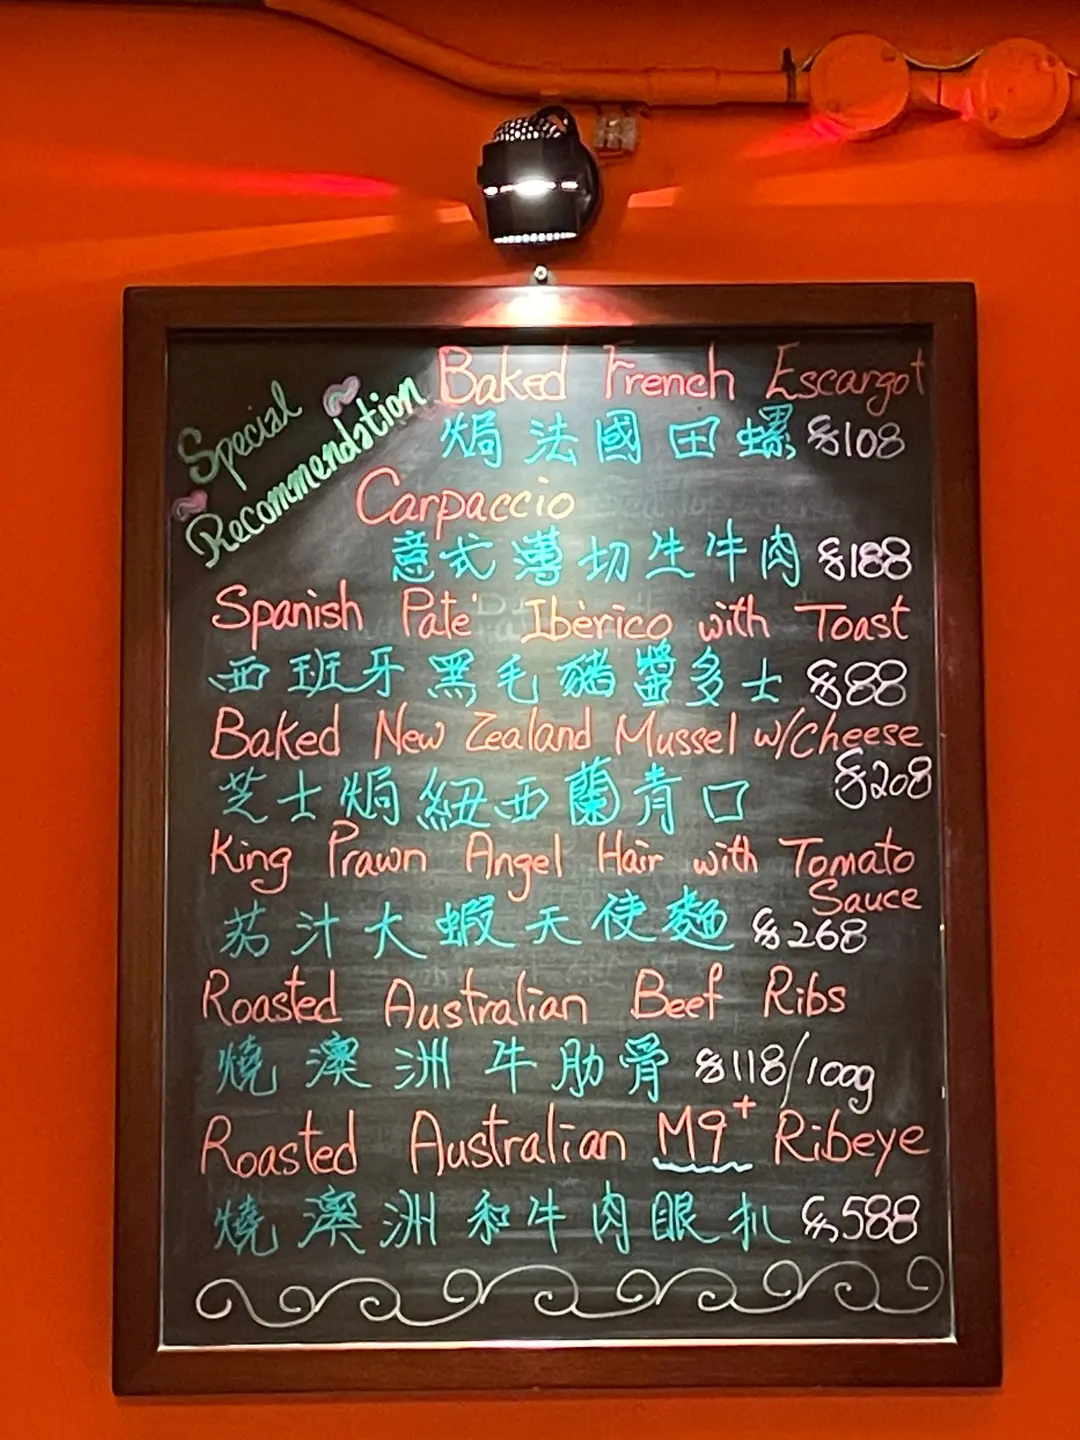 Special
Recommendation
Baked French Escargot
焗法國田螺 $108
Carpaccio
意式薄切生牛肉 $188
Spanish Pate' Ibèrico with Toast
西班牙黑毛豬醬多士 $88
Baked New Zealand Mussel w/Cheese
芝士焗紐西蘭青口 $208
King Prawn Angel Hair with Tomato
Sauce
茄汁大蝦天使麵 $268
Roasted Australian Beef Ribs
燒澳洲牛肋骨 $118/100g
Roasted Australian M9+ Ribeye
燒澳洲和牛肉眼扒 $588